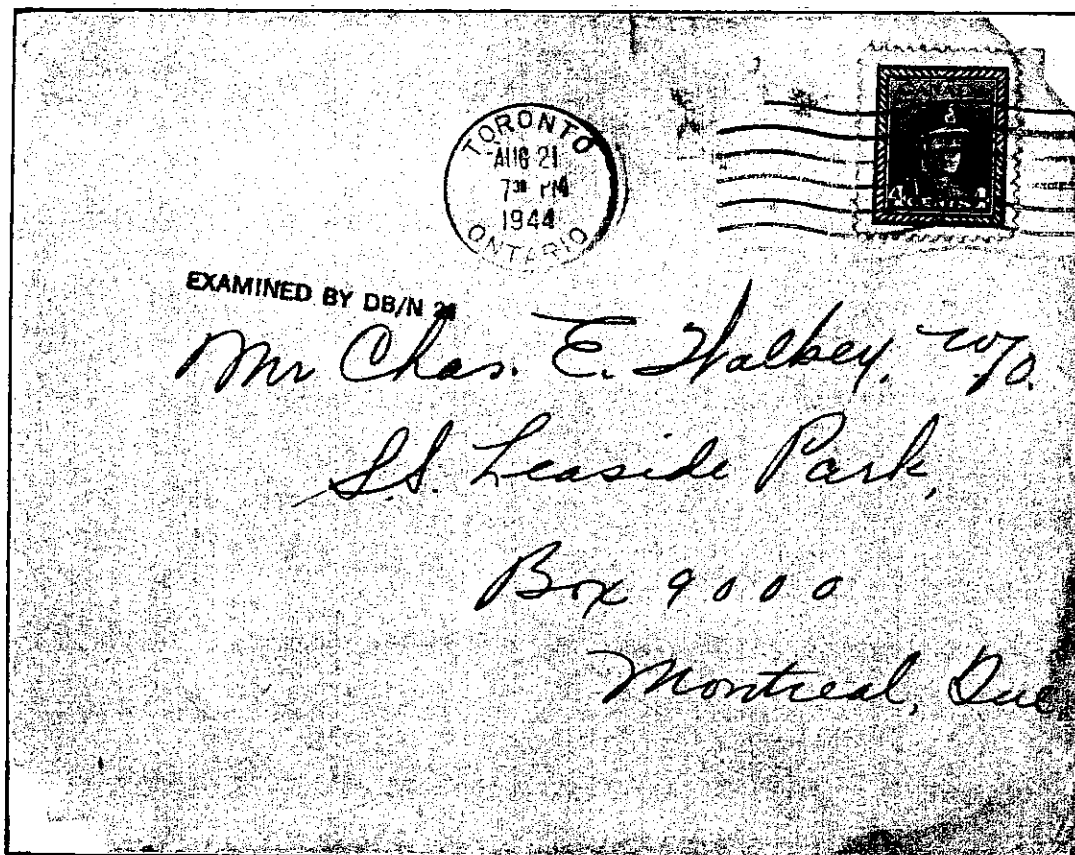 TORONTO
AUG 21
7 30 PM
1944
ONTARIO
CANADA
4 4
EXAMINED BY DB/N
Mr Chas. E. Walkey, W/O.
S.S. Leaside Park,
Box 9000
Montreal, Que